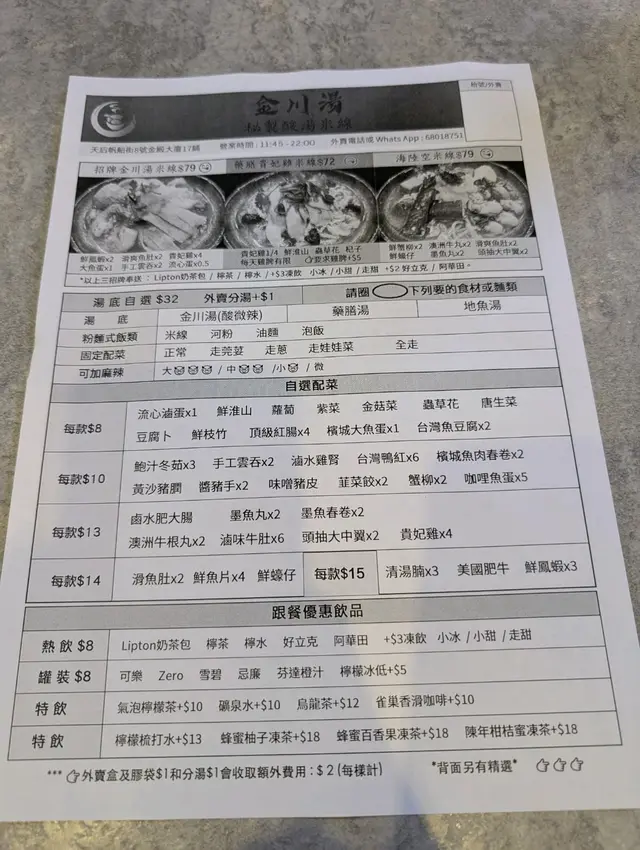 枱號/外賣
金川湯
秘製酸湯米線
天后帆船街8號金殿大廈17舖 營業時間：11:45 - 22:00 外賣電話或 Whats App : 68018751
招牌金川湯米線$79 藥膳貴妃雞米線$72 海陸空米線$79
鮮鳳蝦x2 滑魚肚x2 貴妃雞x4
大魚蛋x1 手工雲吞x2 流心蛋x0.5
貴妃雞1/4 鮮淮山 蟲草花 杞子
每天雞髀有限 要求雞髀+$5
鮮蟹柳x2 澳洲牛丸x2 滑魚肚x2
鮮蠔仔 墨魚丸x2 頭抽大中翼x2
*以上三招牌奉送：Lipton奶茶包 / 檸茶 / 檸水 / +$3凍飲 小冰 / 小甜 / 走甜 +$2 好立克 / 阿華田。
湯底自選 $32 外賣分湯+$1 請圈 下列要的食材或麵類
湯 底 金川湯(酸微辣) 藥膳湯 地魚湯
粉麵式飯類 米線 河粉 油麵 泡飯
固定配菜 正常 走芫荽 走蔥 走娃娃菜 全走
可加麻辣 大 / 中 / 小 / 微
自選配菜
每款$8 流心滷蛋x1 鮮淮山 蘿蔔 紫菜 金菇菜 蟲草花 唐生菜
豆腐卜 鮮枝竹 頂級紅腸x4 檳城大魚蛋x1 台灣魚豆腐x2
每款$10 鮑汁冬茹x3 手工雲吞x2 滷水雞腎 台灣鴨紅x6 檳城魚肉春卷x2
黃沙豬膶 醬豬手x2 味噌豬皮 韮菜餃x2 蟹柳x2 咖哩魚蛋x5
每款$13 鹵水肥大腸 墨魚丸x2 墨魚春卷x2
澳洲牛根丸x2 滷味牛肚x6 頭抽大中翼x2 貴妃雞x4
每款$14 滑魚肚x2 鮮魚片x4 鮮蠔仔 每款$15 清湯腩x3 美國肥牛 鮮鳳蝦x3
跟餐優惠飲品
熱飲 $8 Lipton奶茶包 檸茶 檸水 好立克 阿華田 +$3凍飲 小冰 / 小甜 / 走甜
罐裝 $8 可樂 Zero 雪碧 忌廉 芬達橙汁 檸檬冰低+$5
特飲 氣泡檸檬茶+$10 礦泉水+$10 烏龍茶+$12 雀巢香滑咖啡+$10
特飲 檸檬梳打水+$13 蜂蜜柚子凍茶+$18 蜂蜜百香果凍茶+$18 陳年柑桔蜜凍茶+$18
*** 外賣盒及膠袋$1和分湯$1會收取額外費用 : $ 2 (每樣計) *背面另有精選*